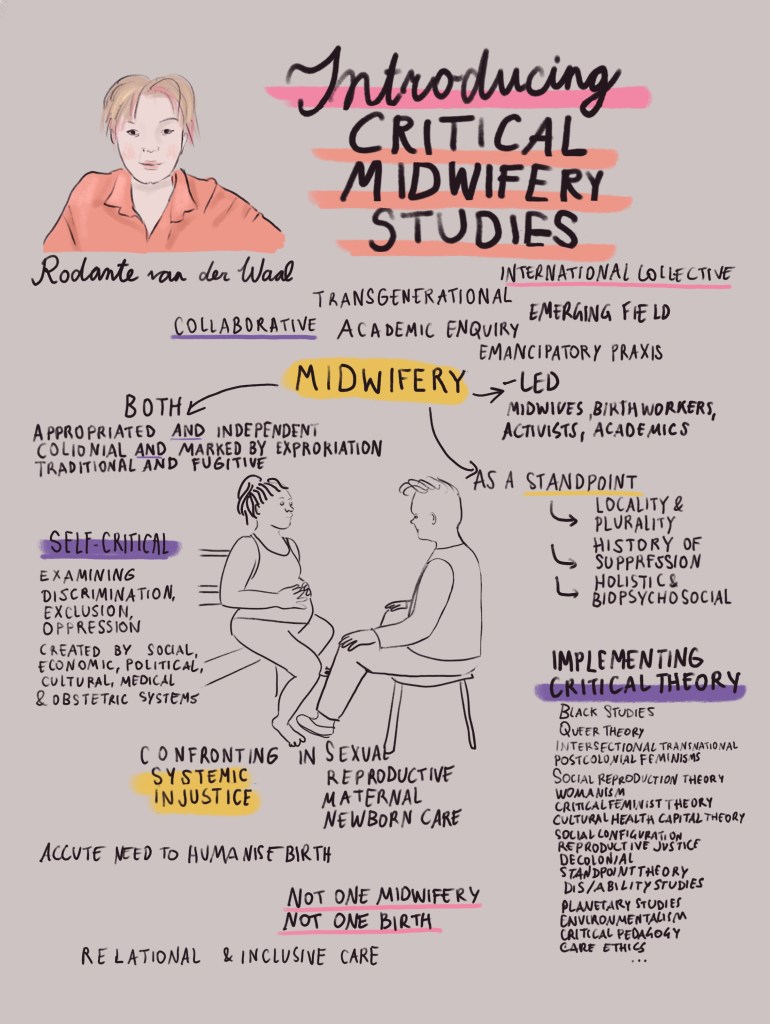 Introducing
CRITICAL
MIDWIFERY
STUDIES
Rodante van der Waal
INTERNATIONAL COLLECTIVE
TRANSGENERATIONAL
EMERGING FIELD
COLLABORATIVE
ACADEMIC ENQUIRY
EMANCIPATORY PRAXIS
MIDWIFERY
-LED
MIDWIVES, BIRTHWORKERS,
ACTIVISTS, ACADEMICS
BOTH
APPROPRIATED AND INDEPENDENT
COLIONIAL AND MARKED BY EXPRORIATION
TRADITIONAL AND FUGITIVE
AS A STANDPOINT
LOCALITY &
PLURALITY
HISTORY OF
SUPPRESSION
HOLISTIC &
BIOPSYCHOSOCIAL
SELF-CRITICAL
EXAMINING
DISCRIMINATION,
EXCLUSION,
OPPRESSION
CREATED BY SOCIAL,
ECONOMIC, POLITICAL,
CULTURAL, MEDICAL
& OBSTETRIC SYSTEMS
IMPLEMENTING
CRITICAL THEORY
BLACK STUDIES
QUEER THEORY
INTERSECTIONAL TRANSNATIONAL
POSTCOLONIAL FEMINISMS
SOCIAL REPRODUCTION THEORY
WOMANISM
CRITICAL FEMINIST THEORY
CULTURAL HEALTH CAPITAL THEORY
SOCIAL CONFIGURATION
REPRODUCTIVE JUSTICE
DECOLONIAL
STANDPOINT THEORY
DIS/ABILITY STUDIES
PLANETARY STUDIES
ENVIRONMENTALISM
CRITICAL PEDAGOGY
CARE ETHICS
...
CONFRONTING IN SEXUAL
SYSTEMIC REPRODUCTIVE
INJUSTICE MATERNAL
NEWBORN CARE
ACCUTE NEED TO HUMANISE BIRTH
NOT ONE MIDWIFERY
NOT ONE BIRTH
RELATIONAL & INCLUSIVE CARE